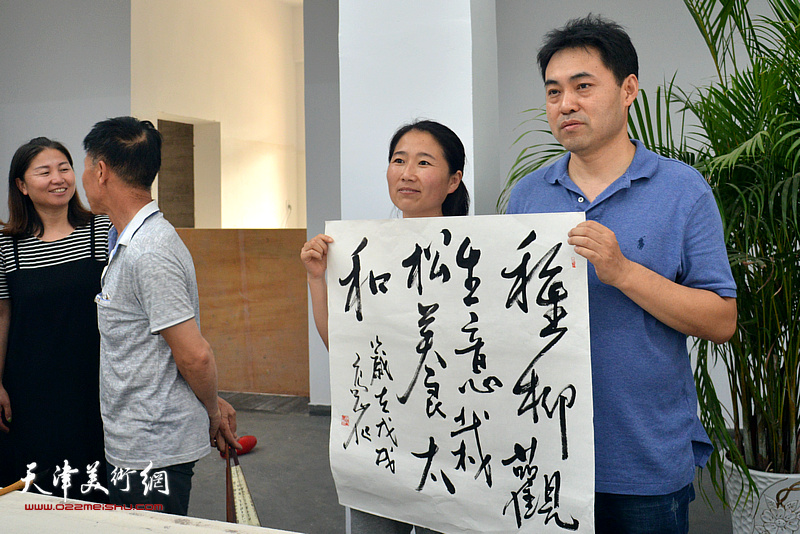 種柳觀
生意栽
松养太
和
歲在戊戌
天津美術網
www.022meishu.com